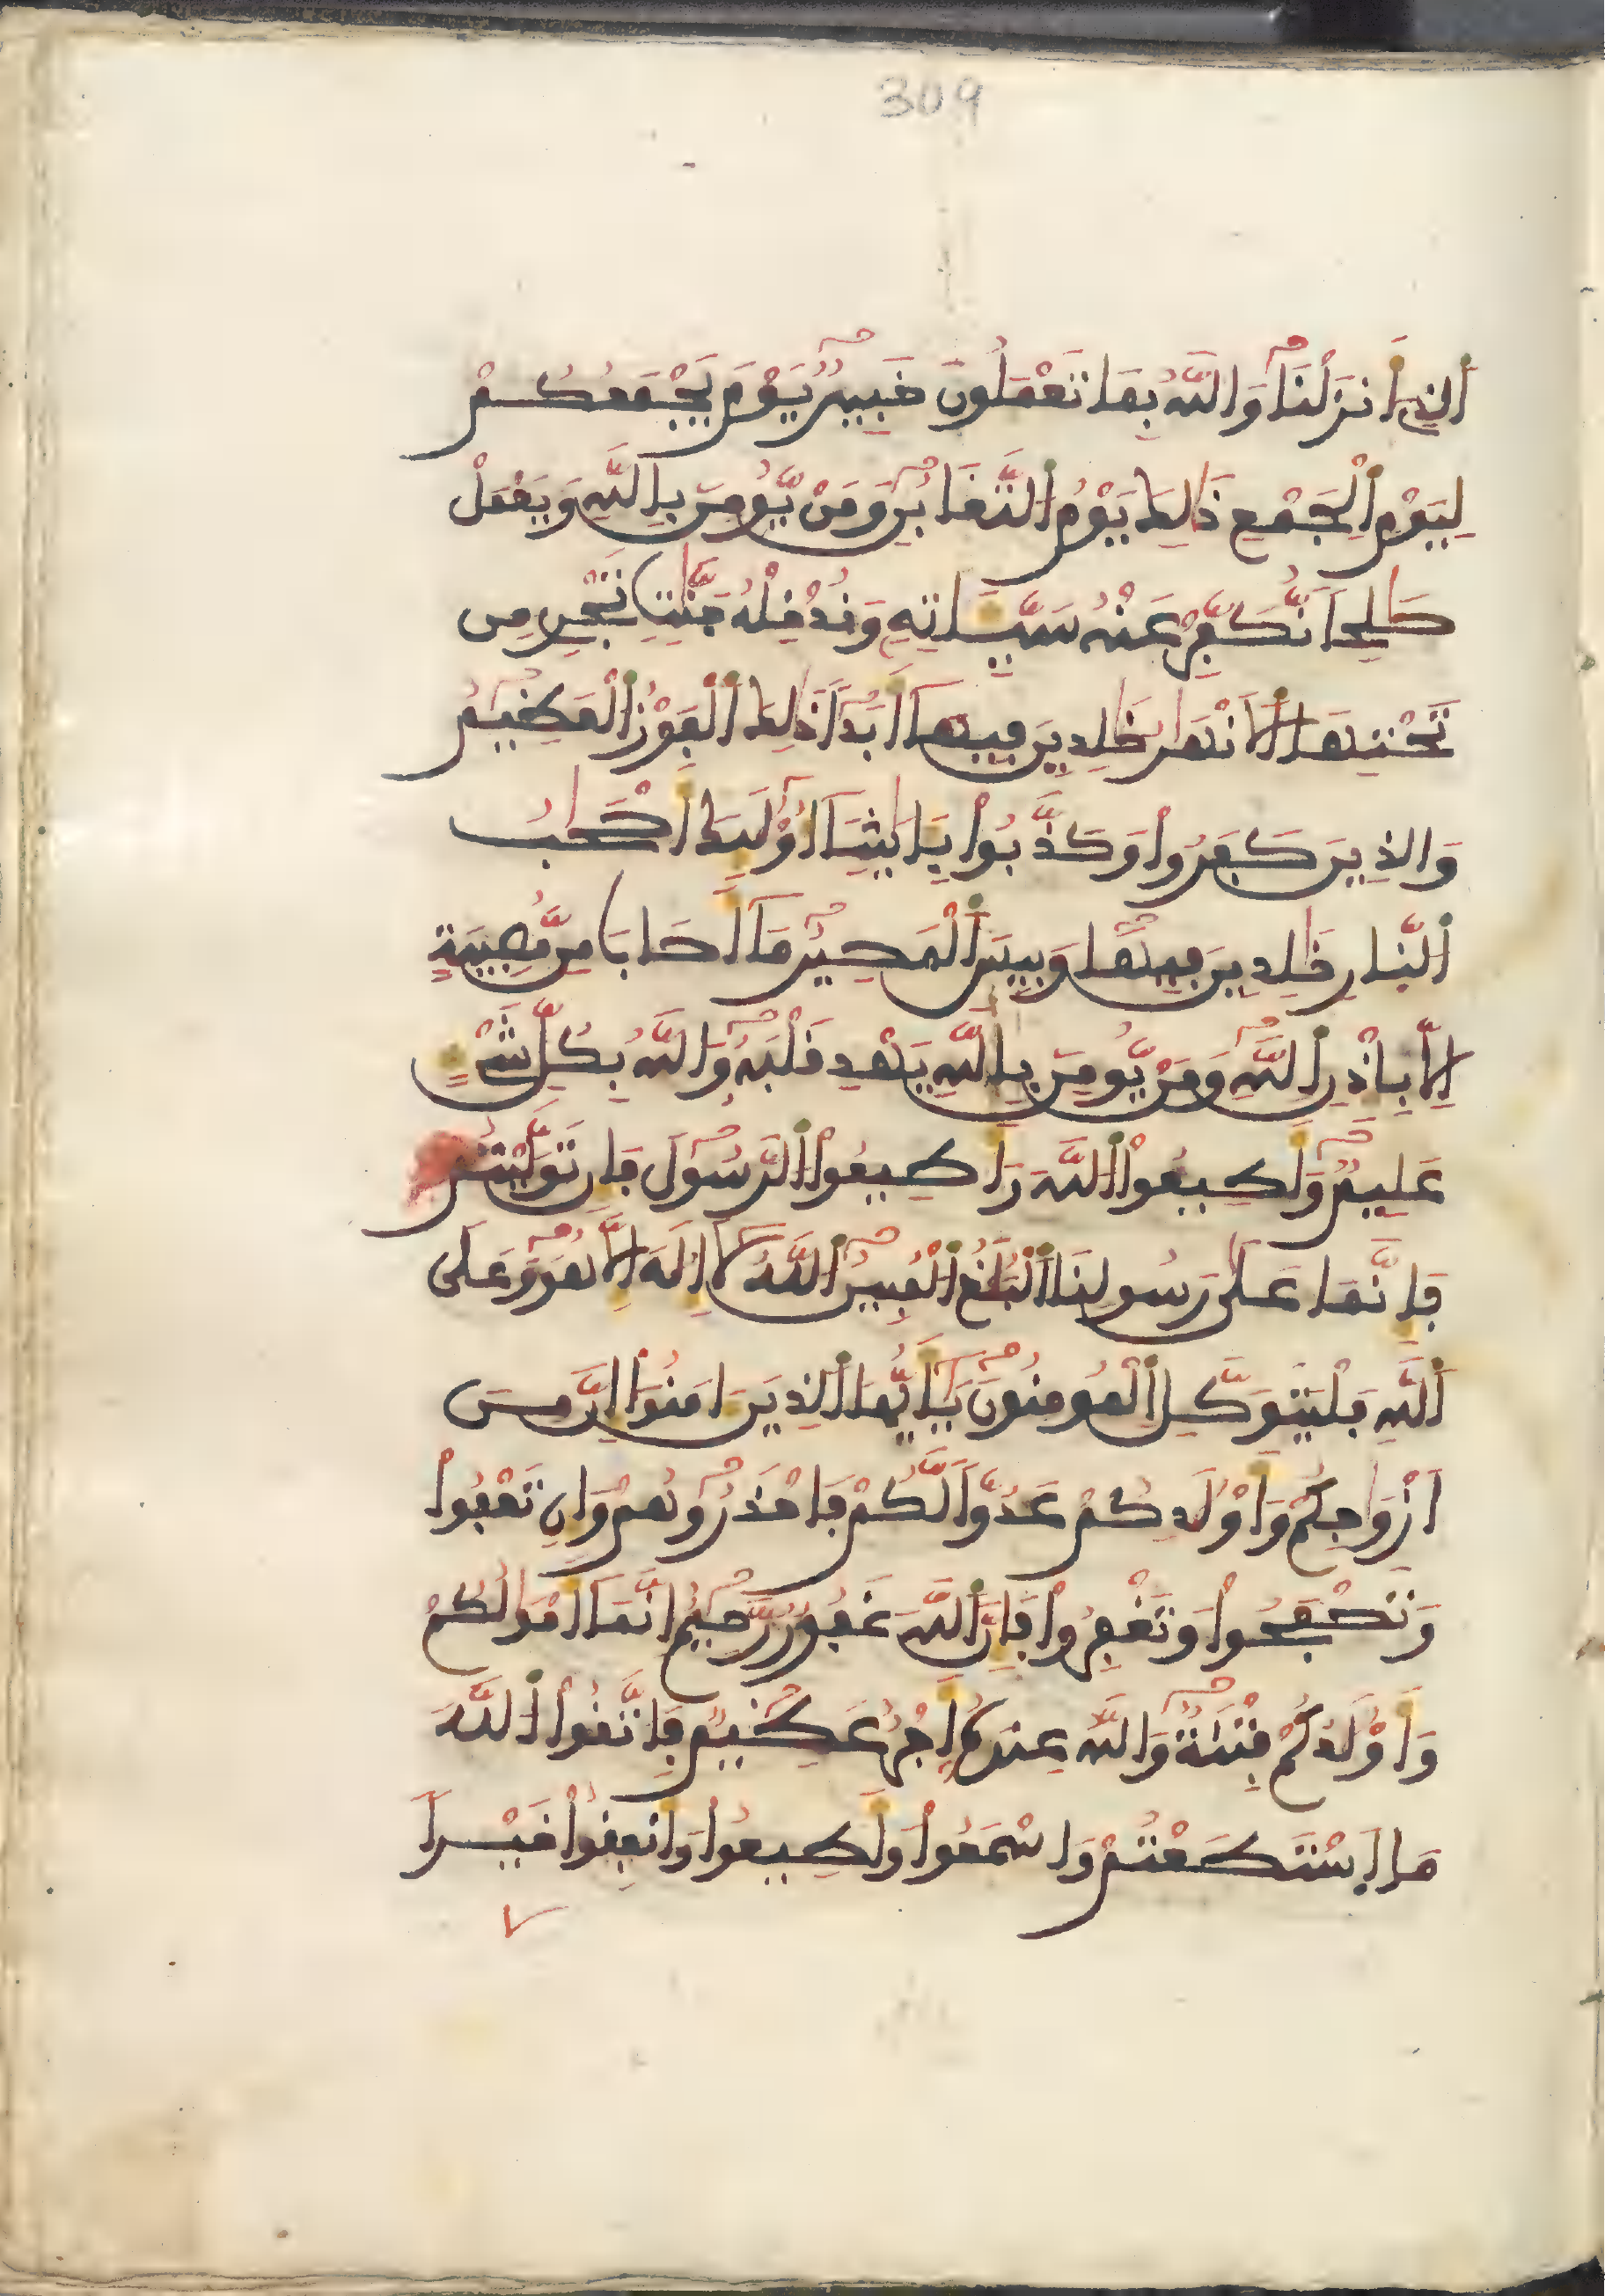 309
اَلذِےٓ أَنزَلْنَا وَاللَّهُ بِمَا تَعْمَلُونَ خَبِيرٌ يَوْمَ يَجْمَعُكُمْ
لِيَوْمِ اِلْجَمْعِ ذَٰلِكَ يَوْمُ اُلتَّغَابُنِ وَمَنْ يُّومِنۢ بِاللَّهِ وَيَعْمَلْ
صَٰلِحاً نُّكَفِّرْ عَنْهُ سَيِّـَٔاتِهِ وَنُدْخِلْهُ جَنَّٰتٍ تَجْرِے مِن
تَحْتِهَا اَ۬لْأَنْهَٰرُ خَٰلِدِينَ فِيهَآ أَبَداً ذَٰلِكَ اَ۬لْفَوْزُ اُ۬لْعَظِيمُ
وَالذِينَ كَفَرُواْ وَكَذَّبُواْ بِـَٔايَٰتِنَآ أُوْلَٰٓئِكَ أَصْحَٰبُ
اُ۬لنَّارِ خَٰلِدِينَ فِيهَا وَبِيسَ اَ۬لْمَصِيرُ مَآ أَصَابَ مِن مُّصِيبَةٍ
إِلَّا بِإِذْنِ اِ۬للَّهِ وَمَنْ يُّومِنۢ بِاللَّهِ يَهْدِ قَلْبَهُۥ وَاللَّهُ بِكُلِّ شَےْءٍ
عَلِيمٌ وَأَطِيعُواْ اُ۬للَّهَ وَأَطِيعُواْ اُ۬لرَّسُولَ فَإِن تَوَلَّيْتُمْ
فَإِنَّمَا عَلَىٰ رَسُولِنَا اَ۬لْبَلَٰغُ اُ۬لْمُبِينُ اُ۬للَّهُ لَآ إِلَٰهَ إِلَّا هُوَ وَعَلَى
اَ۬للَّهِ فَلْيَتَوَكَّلِ اِ۬لْمُومِنُونَ يَٰٓأَيُّهَا اَ۬لذِينَ ءَامَنُوٓاْ إِنَّ مِنَ
اَزْوَٰجِكُمْ وَأَوْلَٰدِكُمْ عَدُوّاً لَّكُمْ فَاحْذَرُوهُمْ وَإِن تَعْفُواْ
وَتَصْفَحُواْ وَتَغْفِرُواْ فَإِنَّ اَ۬للَّهَ غَفُورٌ رَّحِيمٌ إِنَّمَآ أَمْوَٰلُكُمْ
وَأَوْلَٰدُكُمْ فِتْنَةٌ وَاللَّهُ عِندَهُۥٓ أَجْرٌ عَظِيمٌ فَاتَّقُواْ اُ۬للَّهَ
مَا اَ۪سْتَطَعْتُمْ وَاسْمَعُواْ وَأَطِيعُواْ وَأَنفِقُواْ خَيْراً